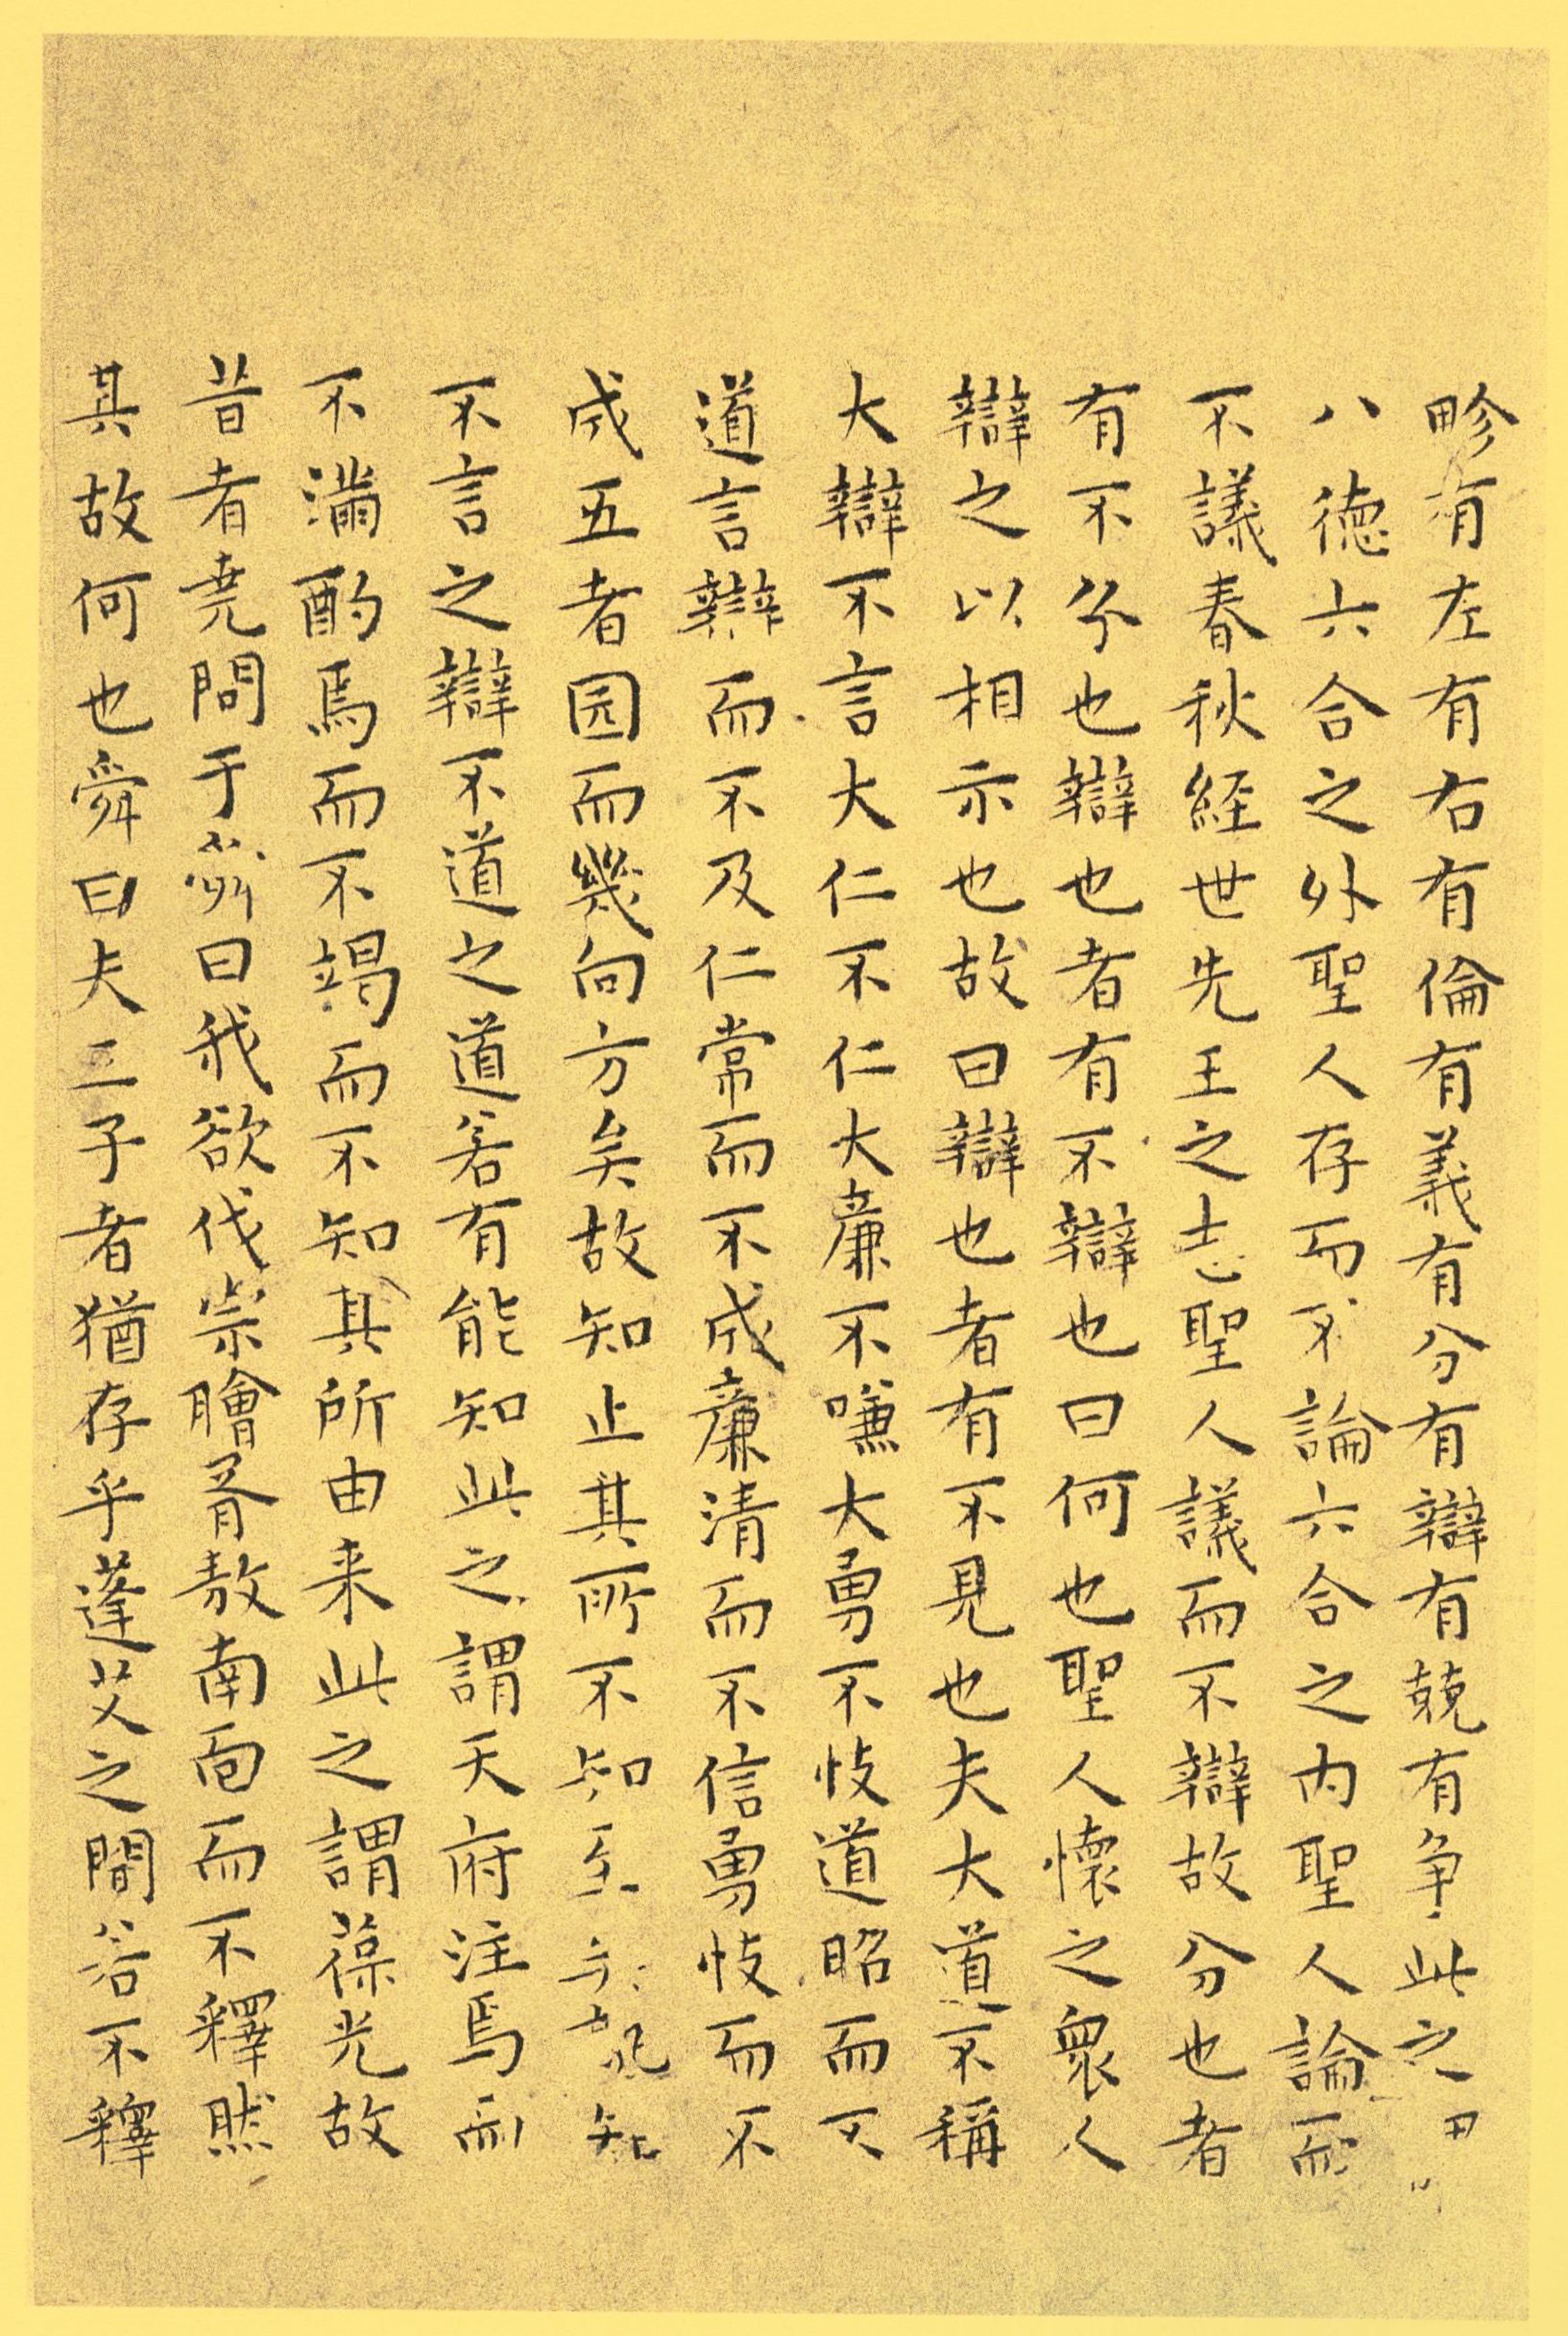 畛有左有右有倫有義有分有辯有競有争此之
八德六合之外聖人存而不論六合之内聖人論而
不議春秋経世先王之志聖人議而不辯故分也者
有不分也辯也者有不辯也曰何也聖人懷之衆人
辯之以相示也故曰辯也者有不見也夫大道不稱
大辯不言大仁不仁大廉不嗛大勇不忮道昭而不
道言辯而不及仁常而不成廉清而不信勇忮而不
成五者园而幾向方矣故知止其所不知至矣孰知
不言之辯不道之道若有能知此之謂天府注焉而
不滿酌焉而不竭而不知其所由来此之謂葆光故
昔者堯問于舜曰我欲伐宗膾胥敖南面而不釋然
其故何也舜曰夫三子者猶存乎蓬艾之間若不釋